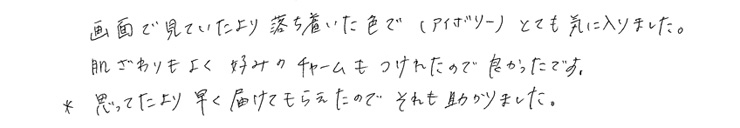 画面で見ていたより落ち着いた色で(アイボリー)とても気に入りました。
肌ざわりもよく好みのチャームもつけれたので良かったです。
* 思ってたより早く届けてもらえたのでそれも助かりました。